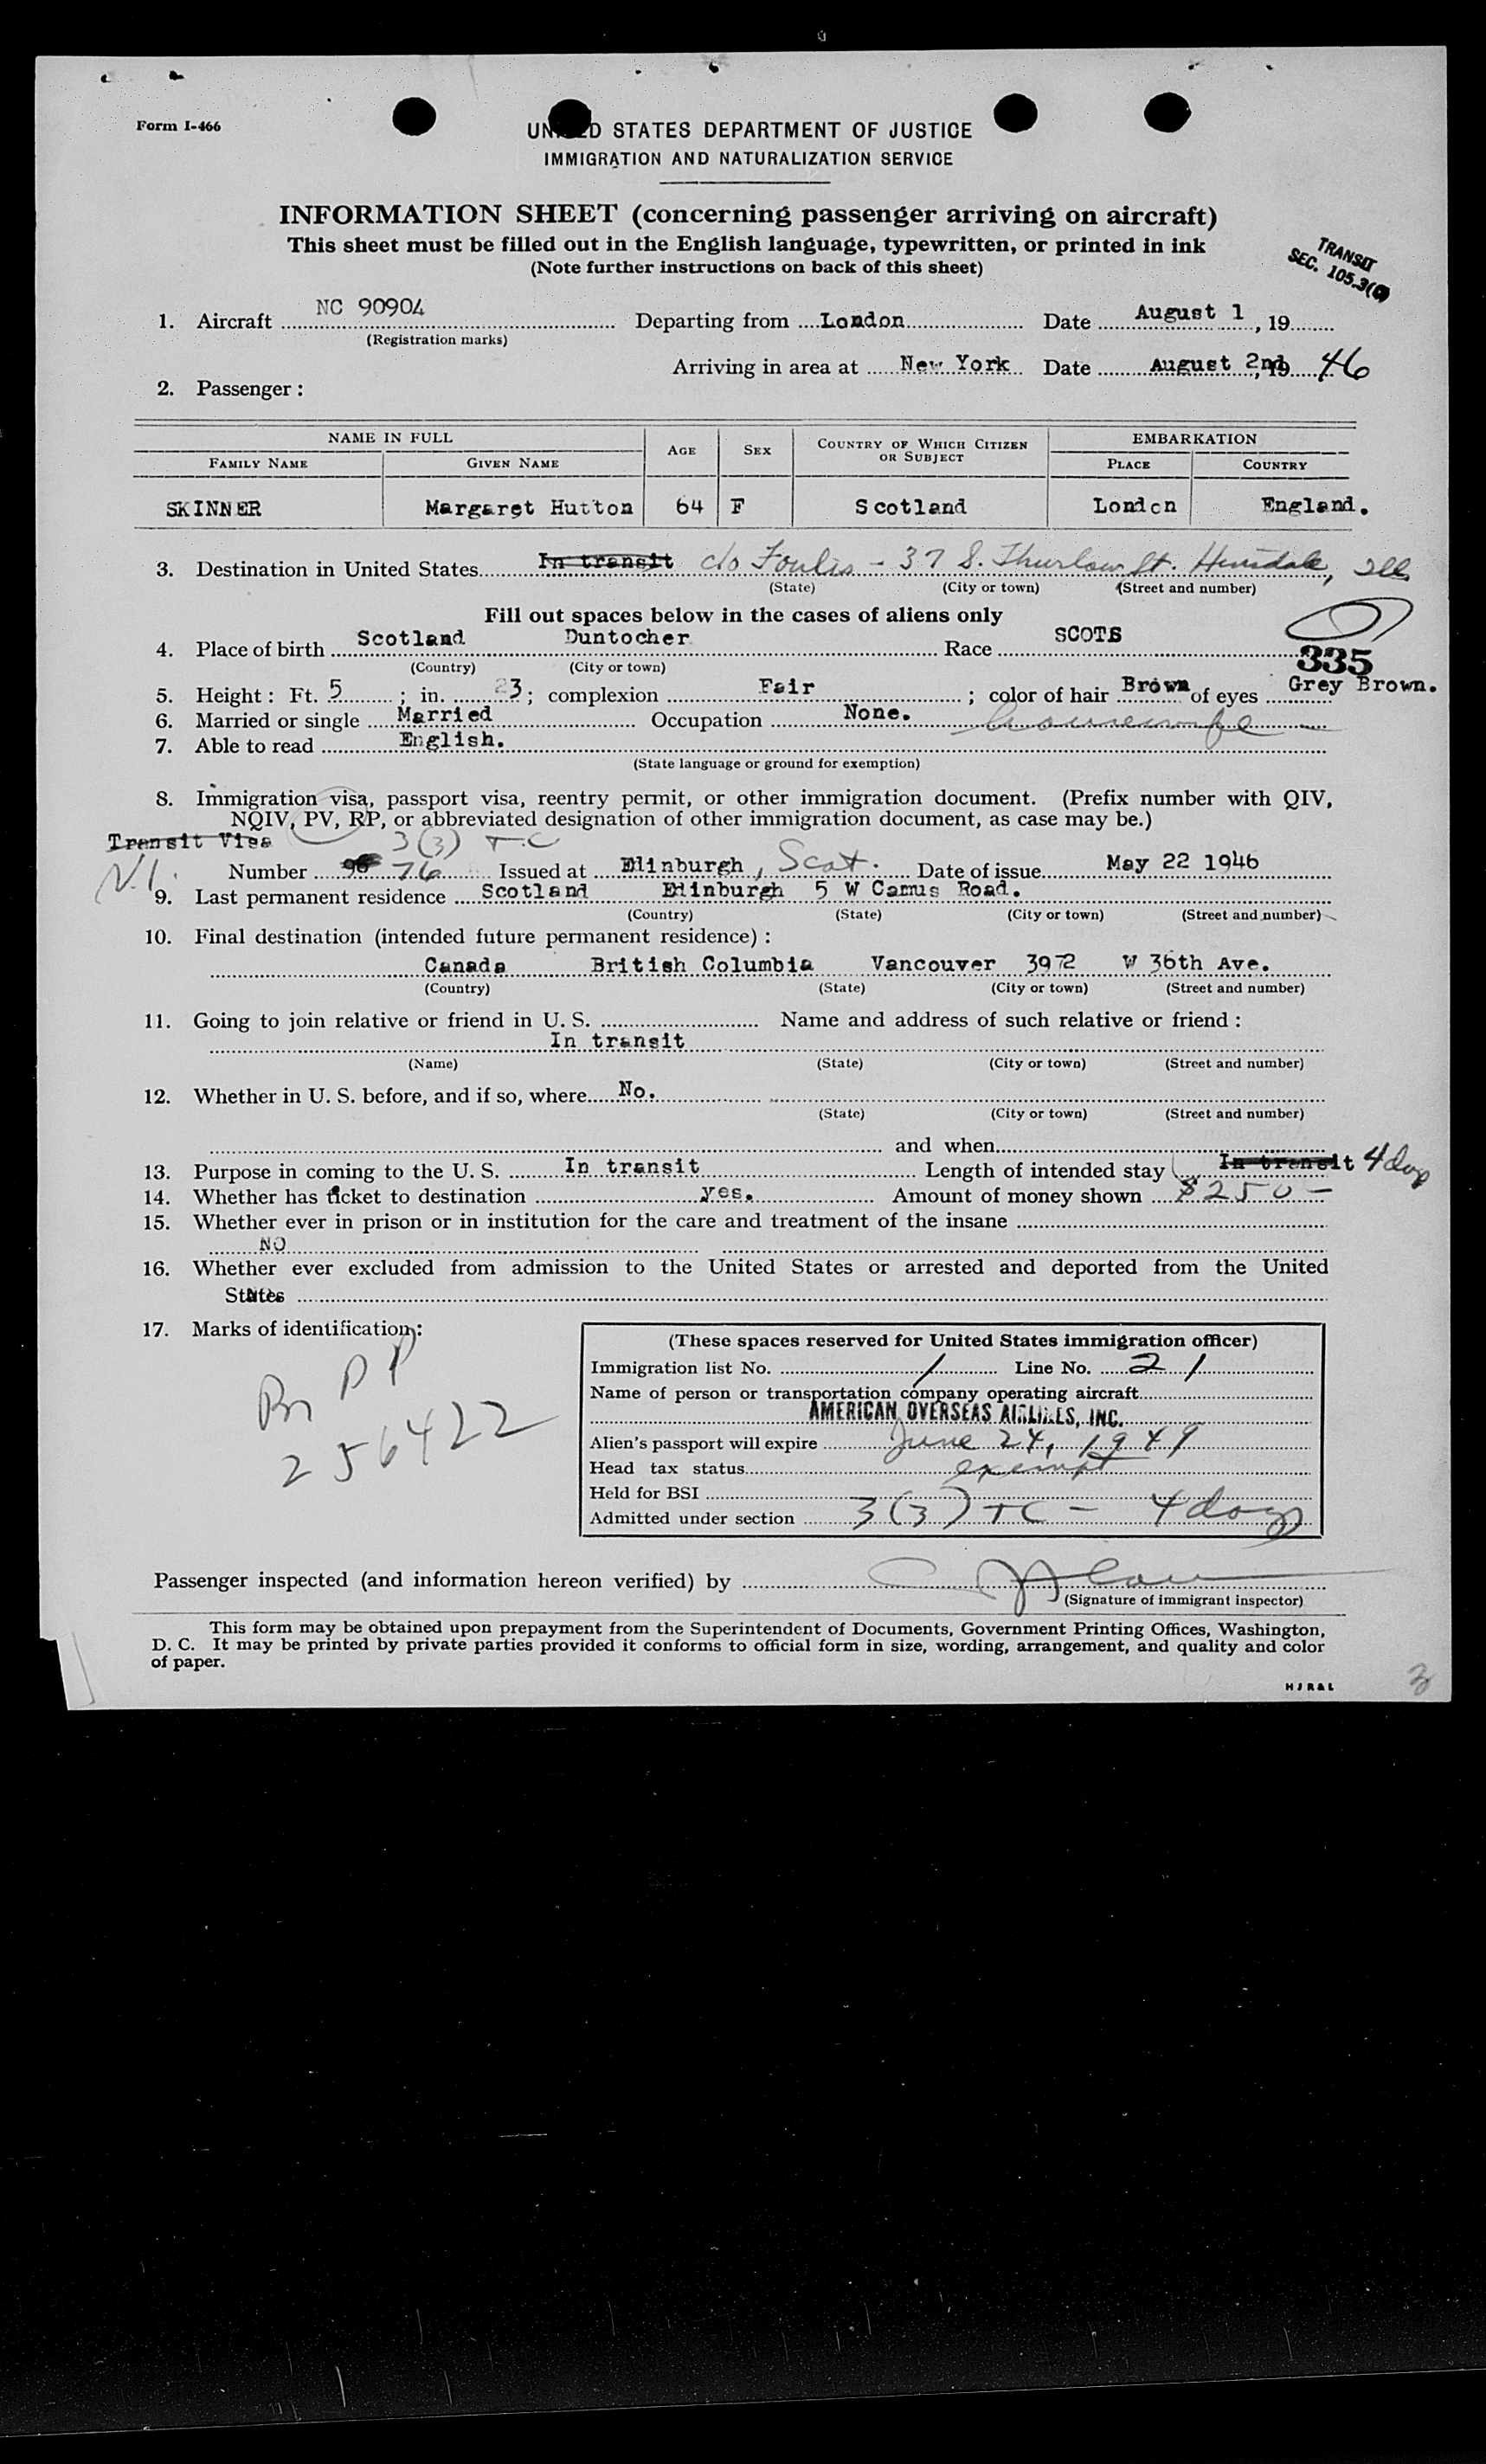 Form I-466
UNITED STATES DEPARTMENT OF JUSTICE
IMMIGRATION AND NATURALIZATION SERVICE
INFORMATION SHEET (concerning passenger arriving on aircraft)
This sheet must be filled out in the English language, typewritten, or printed in ink
(Note further instructions on back of this sheet)
TRANSIT
SEC. 105.3(c)
1. Aircraft NC 90904 Departing from London Date August 1, 19
(Registration marks)
Arriving in area at New York Date August 2nd, 19 46
2. Passenger:
NAME IN FULL AGE SEX COUNTRY OF WHICH CITIZEN OR SUBJECT EMBARKATION
FAMILY NAME GIVEN NAME PLACE COUNTRY
SKINNER Margaret Hutton 64 F Scotland London England.
3. Destination in United States In transit c/o Foulis - 37 S. Thurlow St. Hinsdale, Ill
(State) (City or town) (Street and number)
Fill out spaces below in the cases of aliens only
4. Place of birth Scotland Duntocher Race SCOTS
(Country) (City or town)
335
5. Height: Ft. 5; in. 3; complexion Fair; color of hair Brown of eyes Grey Brown.
6. Married or single Married Occupation None. Housewife
7. Able to read English.
(State language or ground for exemption)
8. Immigration visa, passport visa, reentry permit, or other immigration document. (Prefix number with QIV,
NQIV, PV, RP, or abbreviated designation of other immigration document, as case may be.)
Transit Visa 3(3) TC
V.I. Number 76 Issued at Edinburgh, Scot. Date of issue May 22 1946
9. Last permanent residence Scotland Edinburgh 5 W Camus Road.
(Country) (State) (City or town) (Street and number)
10. Final destination (intended future permanent residence):
Canada British Columbia Vancouver 3972 W 36th Ave.
(Country) (State) (City or town) (Street and number)
11. Going to join relative or friend in U. S. Name and address of such relative or friend:
In transit
(Name) (State) (City or town) (Street and number)
12. Whether in U. S. before, and if so, where No.
(State) (City or town) (Street and number)
and when
13. Purpose in coming to the U. S. In transit Length of intended stay In transit 4 days
14. Whether has ticket to destination yes. Amount of money shown $250-
15. Whether ever in prison or in institution for the care and treatment of the insane
NO
16. Whether ever excluded from admission to the United States or arrested and deported from the United
States No
17. Marks of identification:
Br PP
256422
(These spaces reserved for United States immigration officer)
Immigration list No. 1 Line No. 21
Name of person or transportation company operating aircraft
AMERICAN OVERSEAS AIRLINES, INC.
Alien's passport will expire June 24, 1949
Head tax status exempt
Held for BSI
Admitted under section 3(3) TC - 4 days
Passenger inspected (and information hereon verified) by
(Signature of immigrant inspector)
This form may be obtained upon prepayment from the Superintendent of Documents, Government Printing Offices, Washington,
D. C. It may be printed by private parties provided it conforms to official form in size, wording, arrangement, and quality and color
of paper.
HJR&L
3